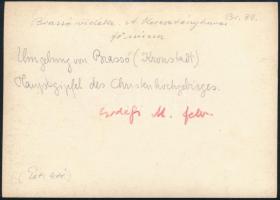 Brassó vidéke. A Keresztényhavas Br. 80.
fő orma
Umgebung von Brassó (Kronstadt)
Hauptgipfel des Christenhochgebirges.
Erdélyi M. felv.